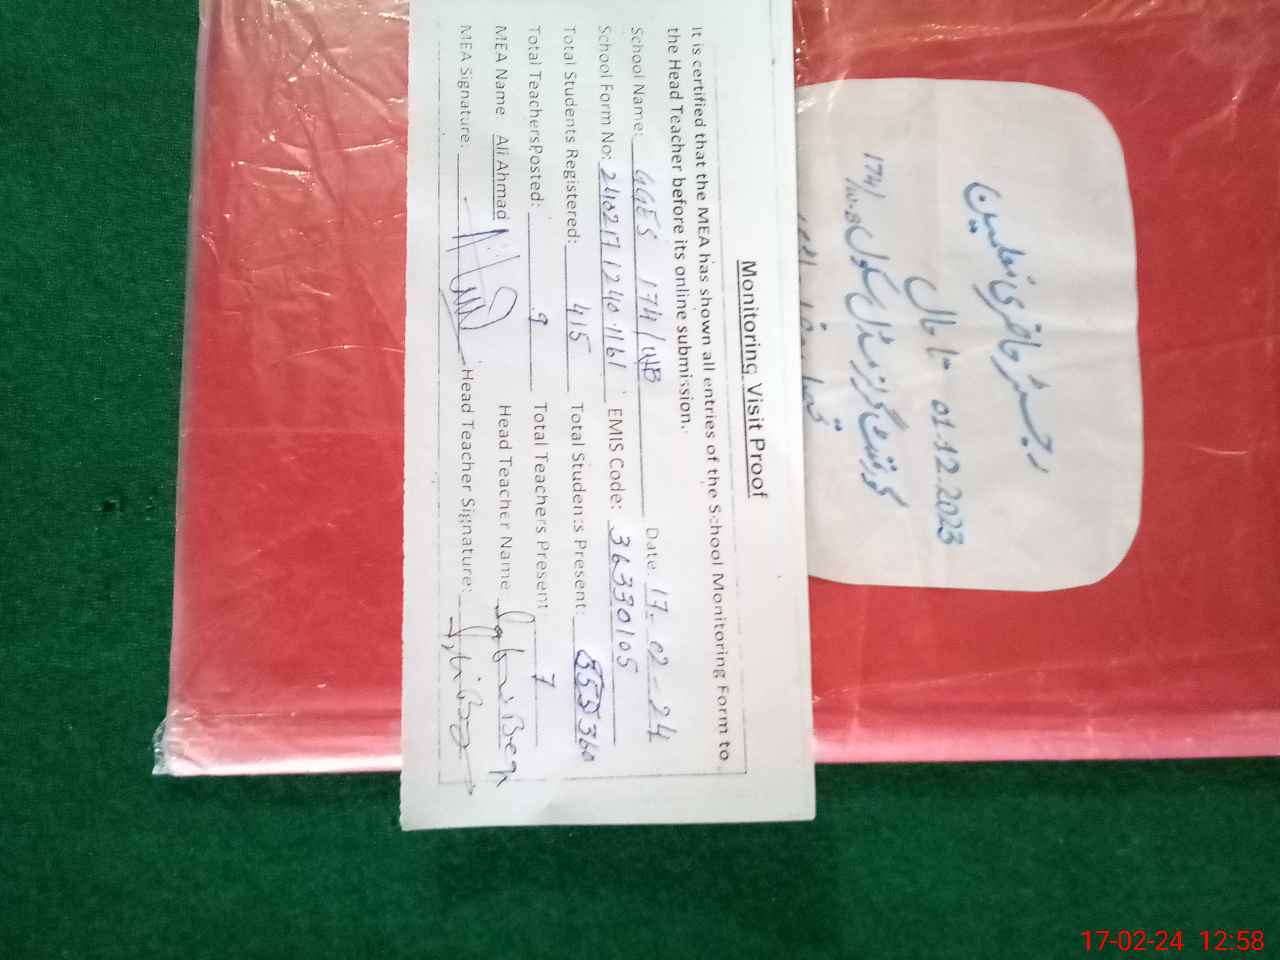 Monitoring Visit Proof
It is certified that the MEA has shown all entries of the School Monitoring Form to
the Head Teacher before its online submission.
School Name: GGES 174/WB Date: 17-02-24
School Form No: EMIS Code: 36330105
Total Students Registered: 415 Total Students Present: 360
Total Teachers Posted: 9 Total Teachers Present 7
MEA Name: Ali Ahmad Head Teacher Name
MEA Signature: Head Teacher Signature:
رجسٹر حاضری معلمین
01.12.2023 تا حال
گورنمنٹ گرلز مڈل سکول 174/W.B
17-02-24 12:58